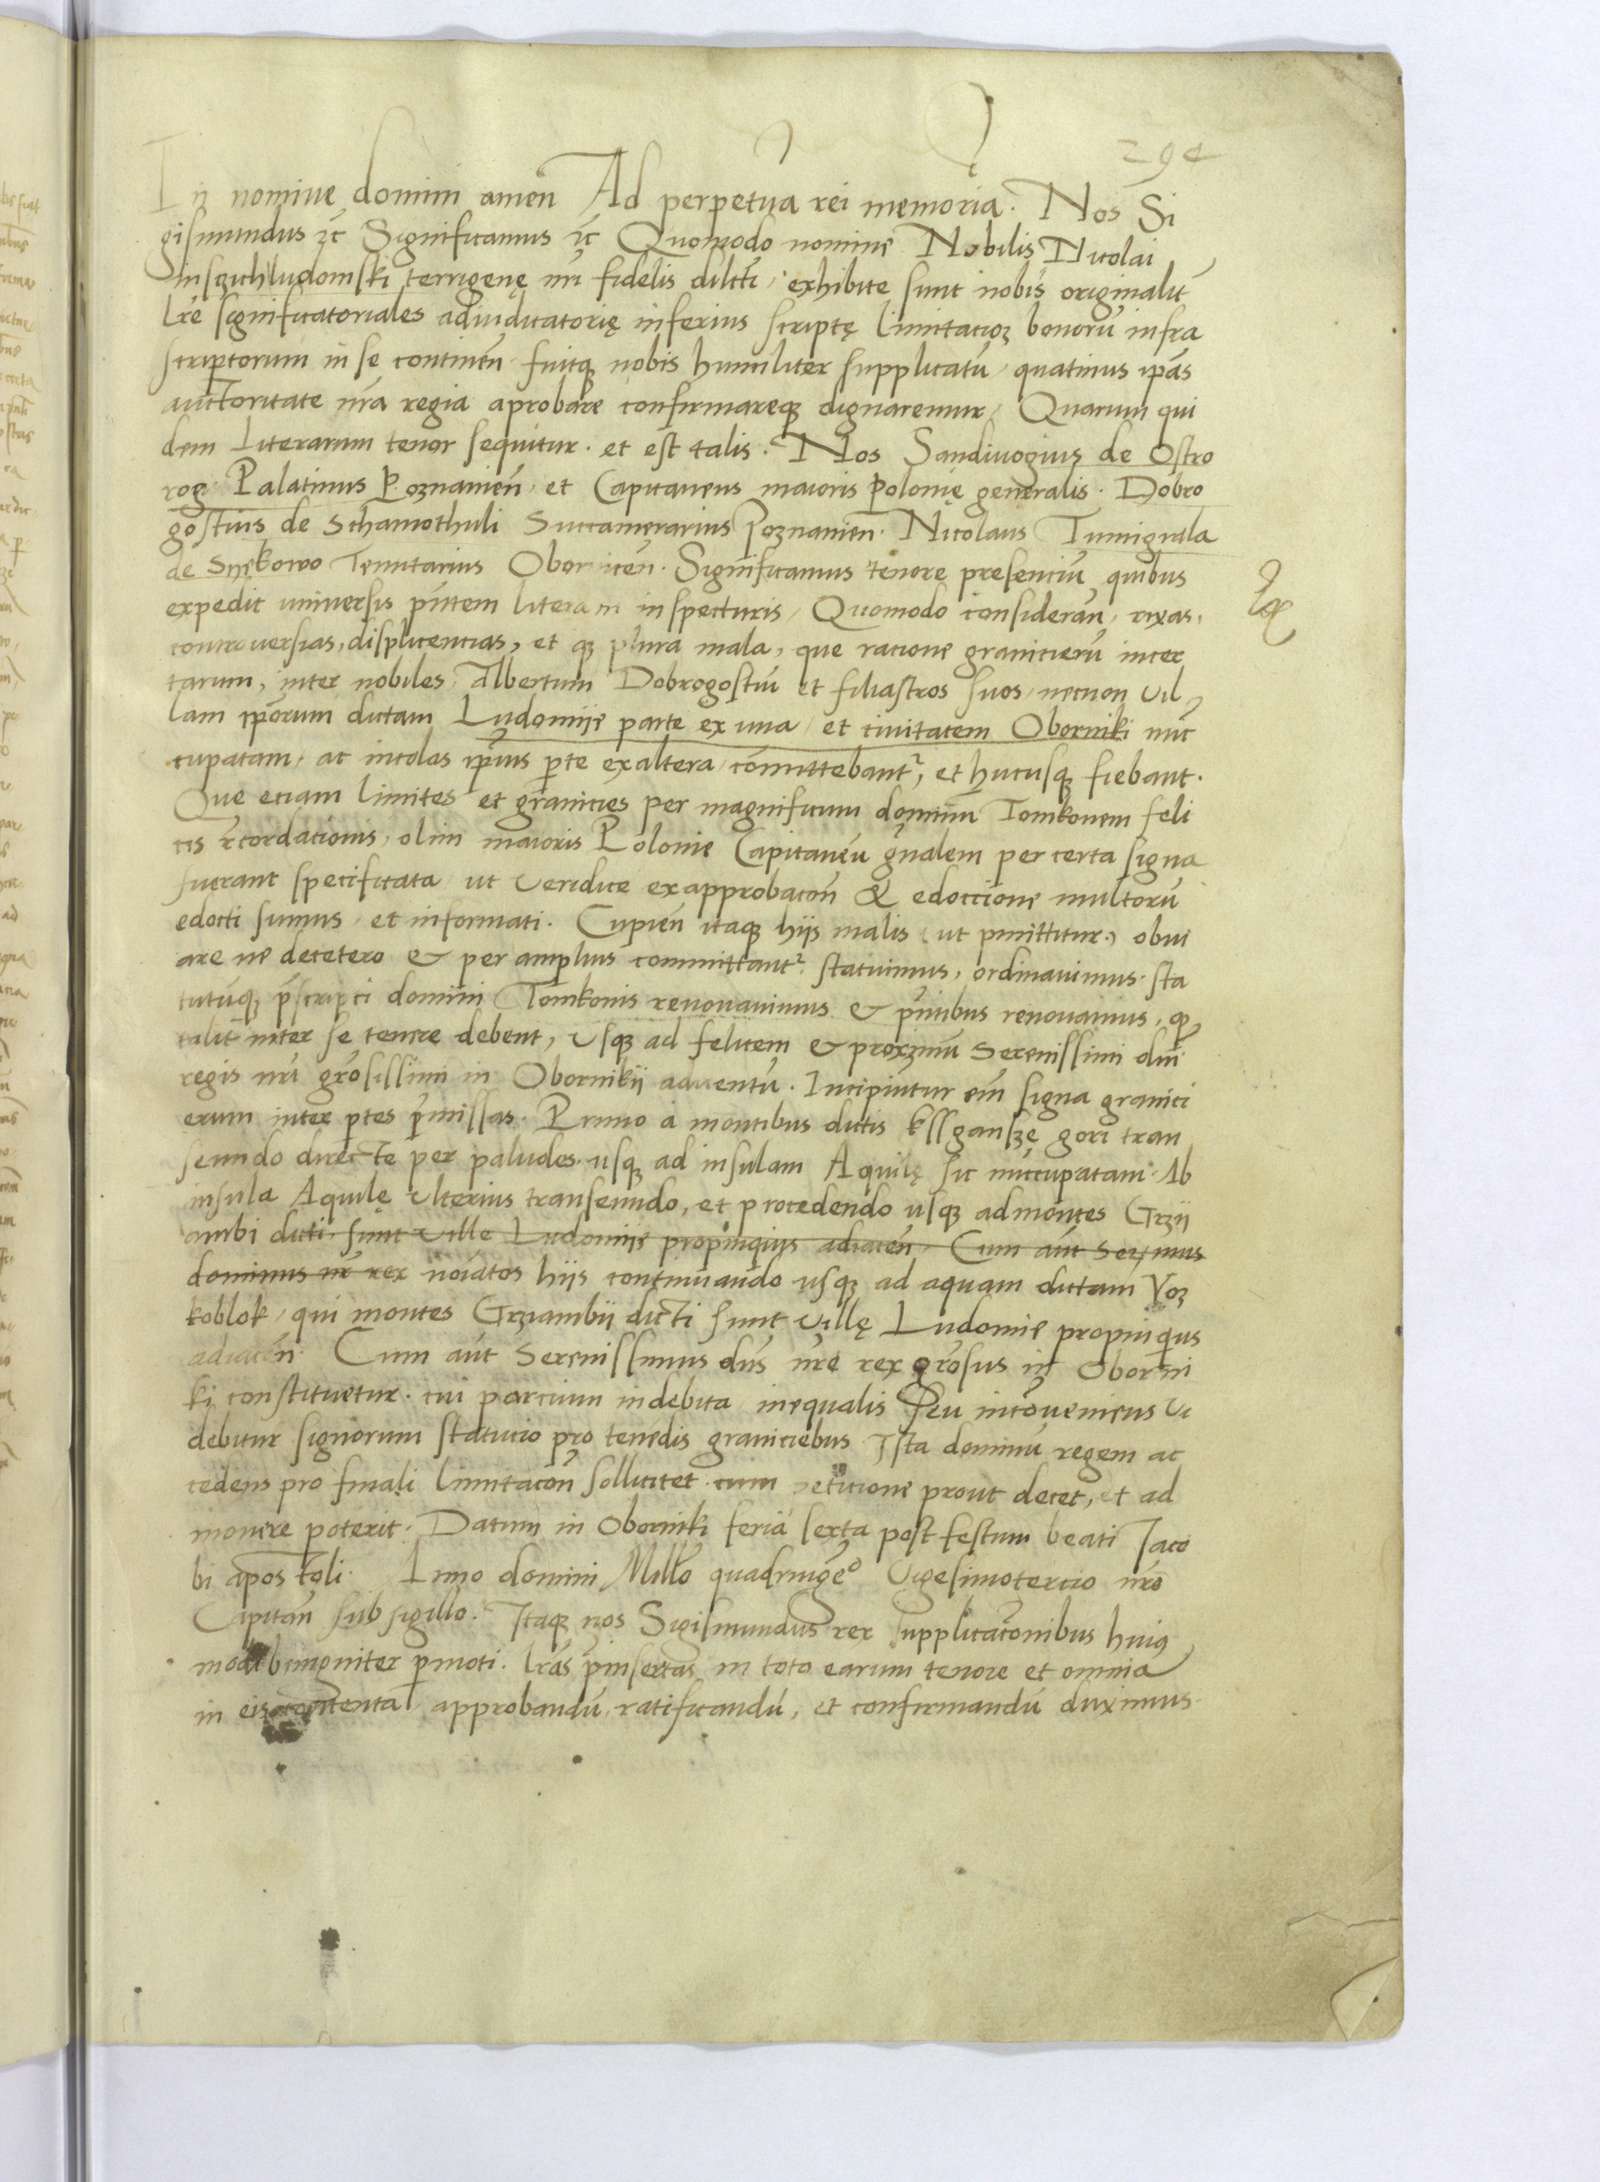 294
In nomine domini amen Ad perpetua rei memoria. Nos Si
gismundus ꝛc Significamus ꝛc Quomodo nomine Nobilis Nicolai
ludomski terrigenę nri fidelis dilcti, exhibite sunt nobis originalit
lre significatoriales adiudicatorię inferius scriptę limitacioꝝ bonorū infra
scriptorum in se continen̄ fuitqꝫ nobis humiliter supplicatū, quatinus ip̄as
auctoritate nr̄a regia aprobare confirmareqꝫ dignaremur, Quarum qui
dem literarum tenor sequitur. et est talis. Nos Sandiuogius de Ostro
rog Palatinus Poznanien̄ et Capitaneus maioris polonię generalis. Dobro
gostius de Schamothuli Succamerarius Poznanien̄. Nicolaus Tumigrala
de Snękowo Tenutarius Obornicen̄. Significamus tenore presenciū quibus
expedit uniuersis pn̄tem literam inspecturis, Quomodo consideran̄, rixas,
controuersias, displicencias, et qꝫ plura mala, que racione granicierū incer
tarum, inter nobiles, Albertum Dobrogostiū et filiastros suos, necnon vil
lam ip̄orum dictam Ludomije parte ex una, et ciuitatem Oborniki nūc
cupatam, ac incolas ip̄ius p̄te ex altera, com̄ittebantᵣ, et hucusqꝫ fiebant.
Que eciam limites et granicies per magnificum dominū Tomkonem feli
cis rcordacionis, olim maioris Polonie Capitaneū gn̄alem per certa signa
fuerant specificata, ut veridice ex approbacōn̄ & edoccione multorū
edocti sumus, et informati. Cupien̄ itaqꝫ hijs malis (ut pmittitur) obui
are ne decetero & per amplius committantᵣ, statuimus, ordinauimus. sta
tutūqꝫ p̄scripti domini Tomkonis renouauimus & pn̄tibus renouamus, qꝫ
talit inter se tenere debent, usqꝫ ad felicem & proximū Serenissimi dnī
regis nr̄i grōsissimi in Obornikij aduentū. Incipiūtur em̄ signa granici
erum inter p̄tes p̄missas. Primo a montibus dictis kssganszę gori tran
seundo directe per paludes usqꝫ ad insulam Aquilę sic nuccupatam. Ab
insula Aquilę ulterius transeundo, et procedendo usqꝫ ad montes Grzij
ambi dicti sunt ville Ludomije propinquijs adiacen̄. Cum aūt Serꝫmus
dominus nr̄ rex noiātos hijs continuando usqꝫ ad aquam dictam Voꝫ
koblok, qui montes Grziambij dicti sunt villę Ludomie propinquius
adiacen̄. Cum aūt Serenissimus dn̄s nr̄e rex grōsus in Oborni
ki constituetur. cui parcium indebita inequalis seu incōueniens vi
debitur signorum statucio pro tenēdis graniciebus Ista dominū regem ac
cedens pro finali limitacōn̄ sollicitet cum peticione prout decet, et ad
monere poterit. Datum in Oborniki feria sexta post festum beati Jaco
bi apostoli. Anno domini Millō quadringē° Vigesimotercio nr̄o
Capitan̄ sub sigillo. Itaqꝫ nos Sigismundus rex supplicacōnibus huiꝰ
modi benigniter pmoti. lrās p̄insertas in toto earum tenore et omnia
in eis contenta, approbandū, ratificandū, et confirmandū duximus.